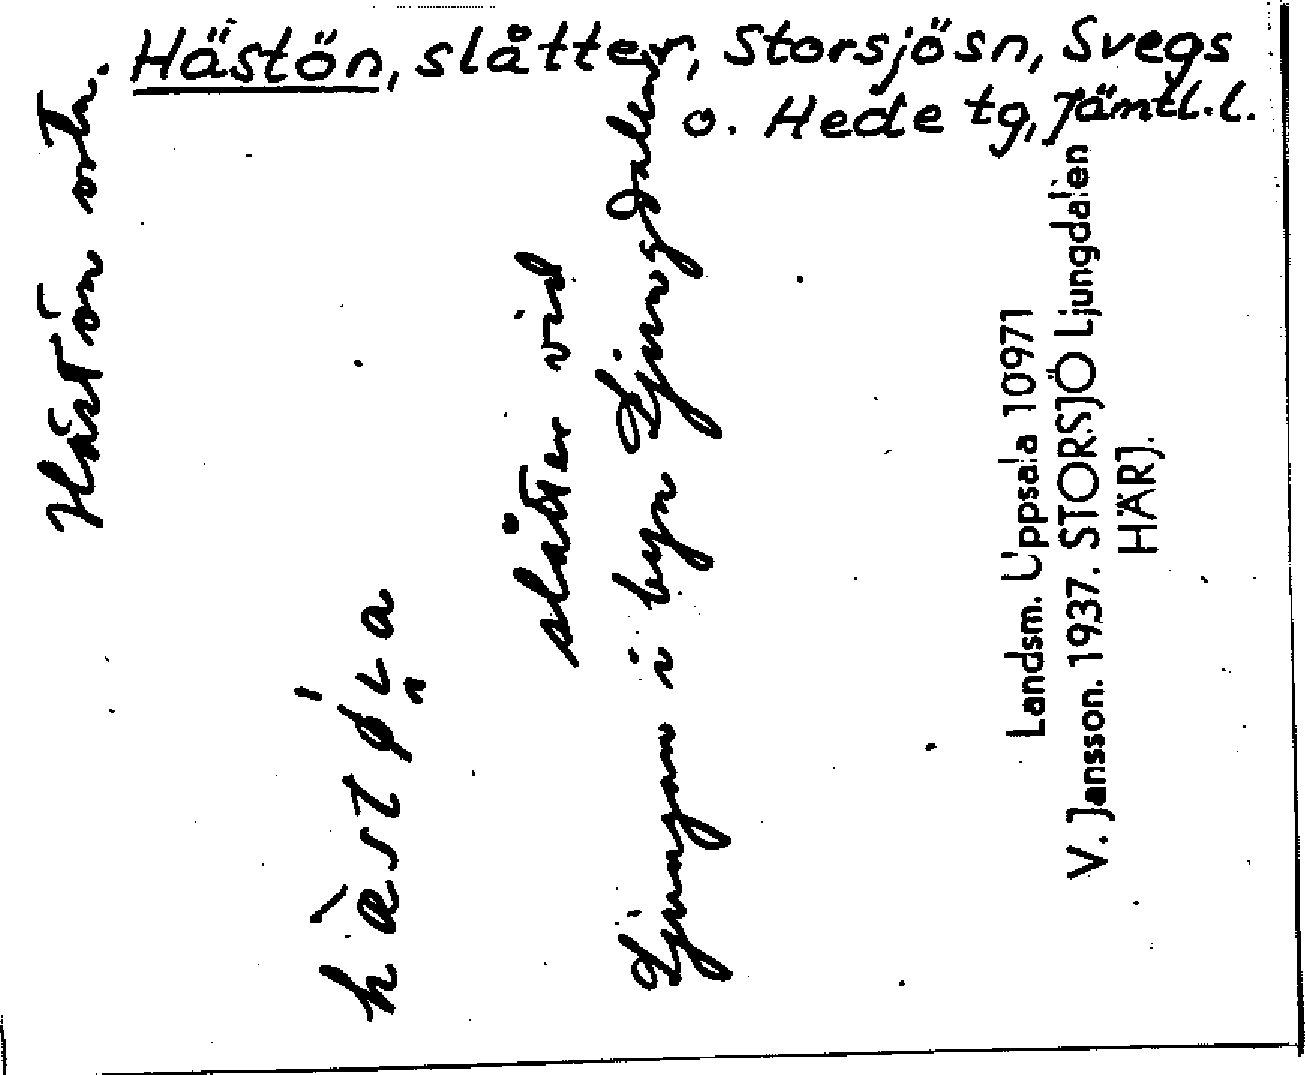 Hästön, slåtter, Storsjösn, Svegs
o. Hede tg, Jämtl. l.
Hästön
hæstøna
slåtter vid
Ljungan i byn Ljungdalen
Landsm. Uppsala 10971
V. Jansson. 1937. STORSJÖ Ljungdalen
HÄRJ.